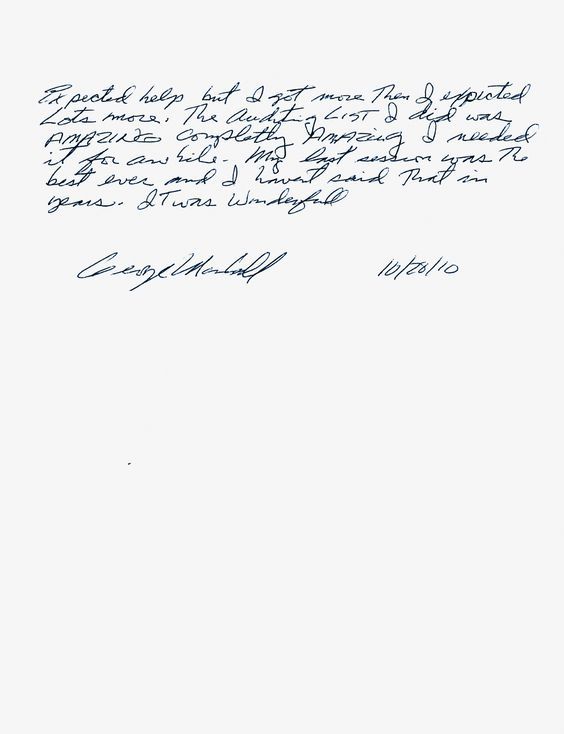 Expected help but I got more Then I expicted
Lots more. The Auditing LIST I did was
AMAZING Completly AMAZING I needed
it for awhile. My last session was The
best ever and I havent said That in
years. IT was Wonderfull
George Marshall 10/28/10